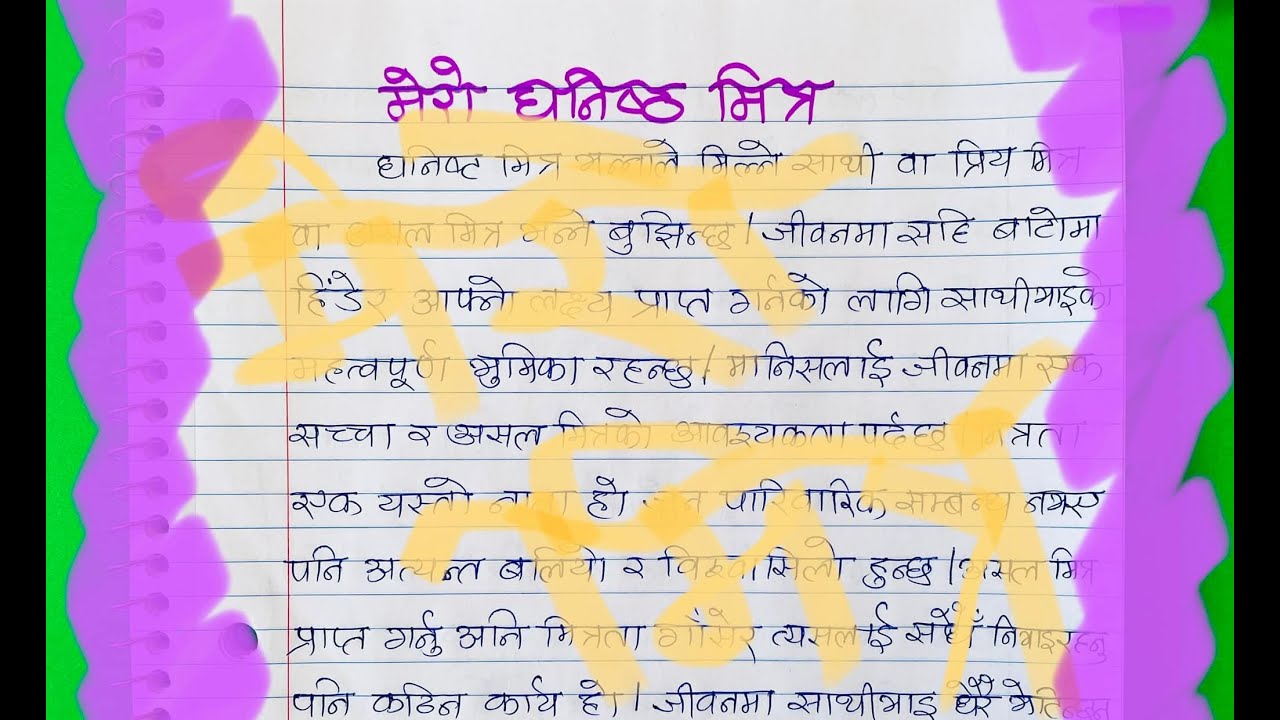 मेरो घनिष्ठ मित्र
घनिष्ट मित्र भन्नाले मिल्ने साथी वा प्रिय मित्र
वा असल मित्र भन्ने बुझिन्छ। जीवनमा सहि बाटोमा
हिंडेर आफ्नो लक्ष्य प्राप्त गर्नको लागि साथीभाइको
महत्वपूर्ण भुमिका रहन्छ। मानिसलाई जीवनमा एक
सच्चा र असल मित्रको आवश्यकता पर्दछ। मित्रता
एक यस्तो नाता हो जुन पारिवारिक सम्बन्ध नभए
पनि अत्यन्त बलियो र विश्वासिलो हुन्छ। असल मित्र
प्राप्त गर्नु अनि मित्रता गाँसेर त्यसलाई सधैँ निभाइरहनु
पनि कठिन कार्य हो। जीवनमा साथीभाइ धेरै भेटिन्छन